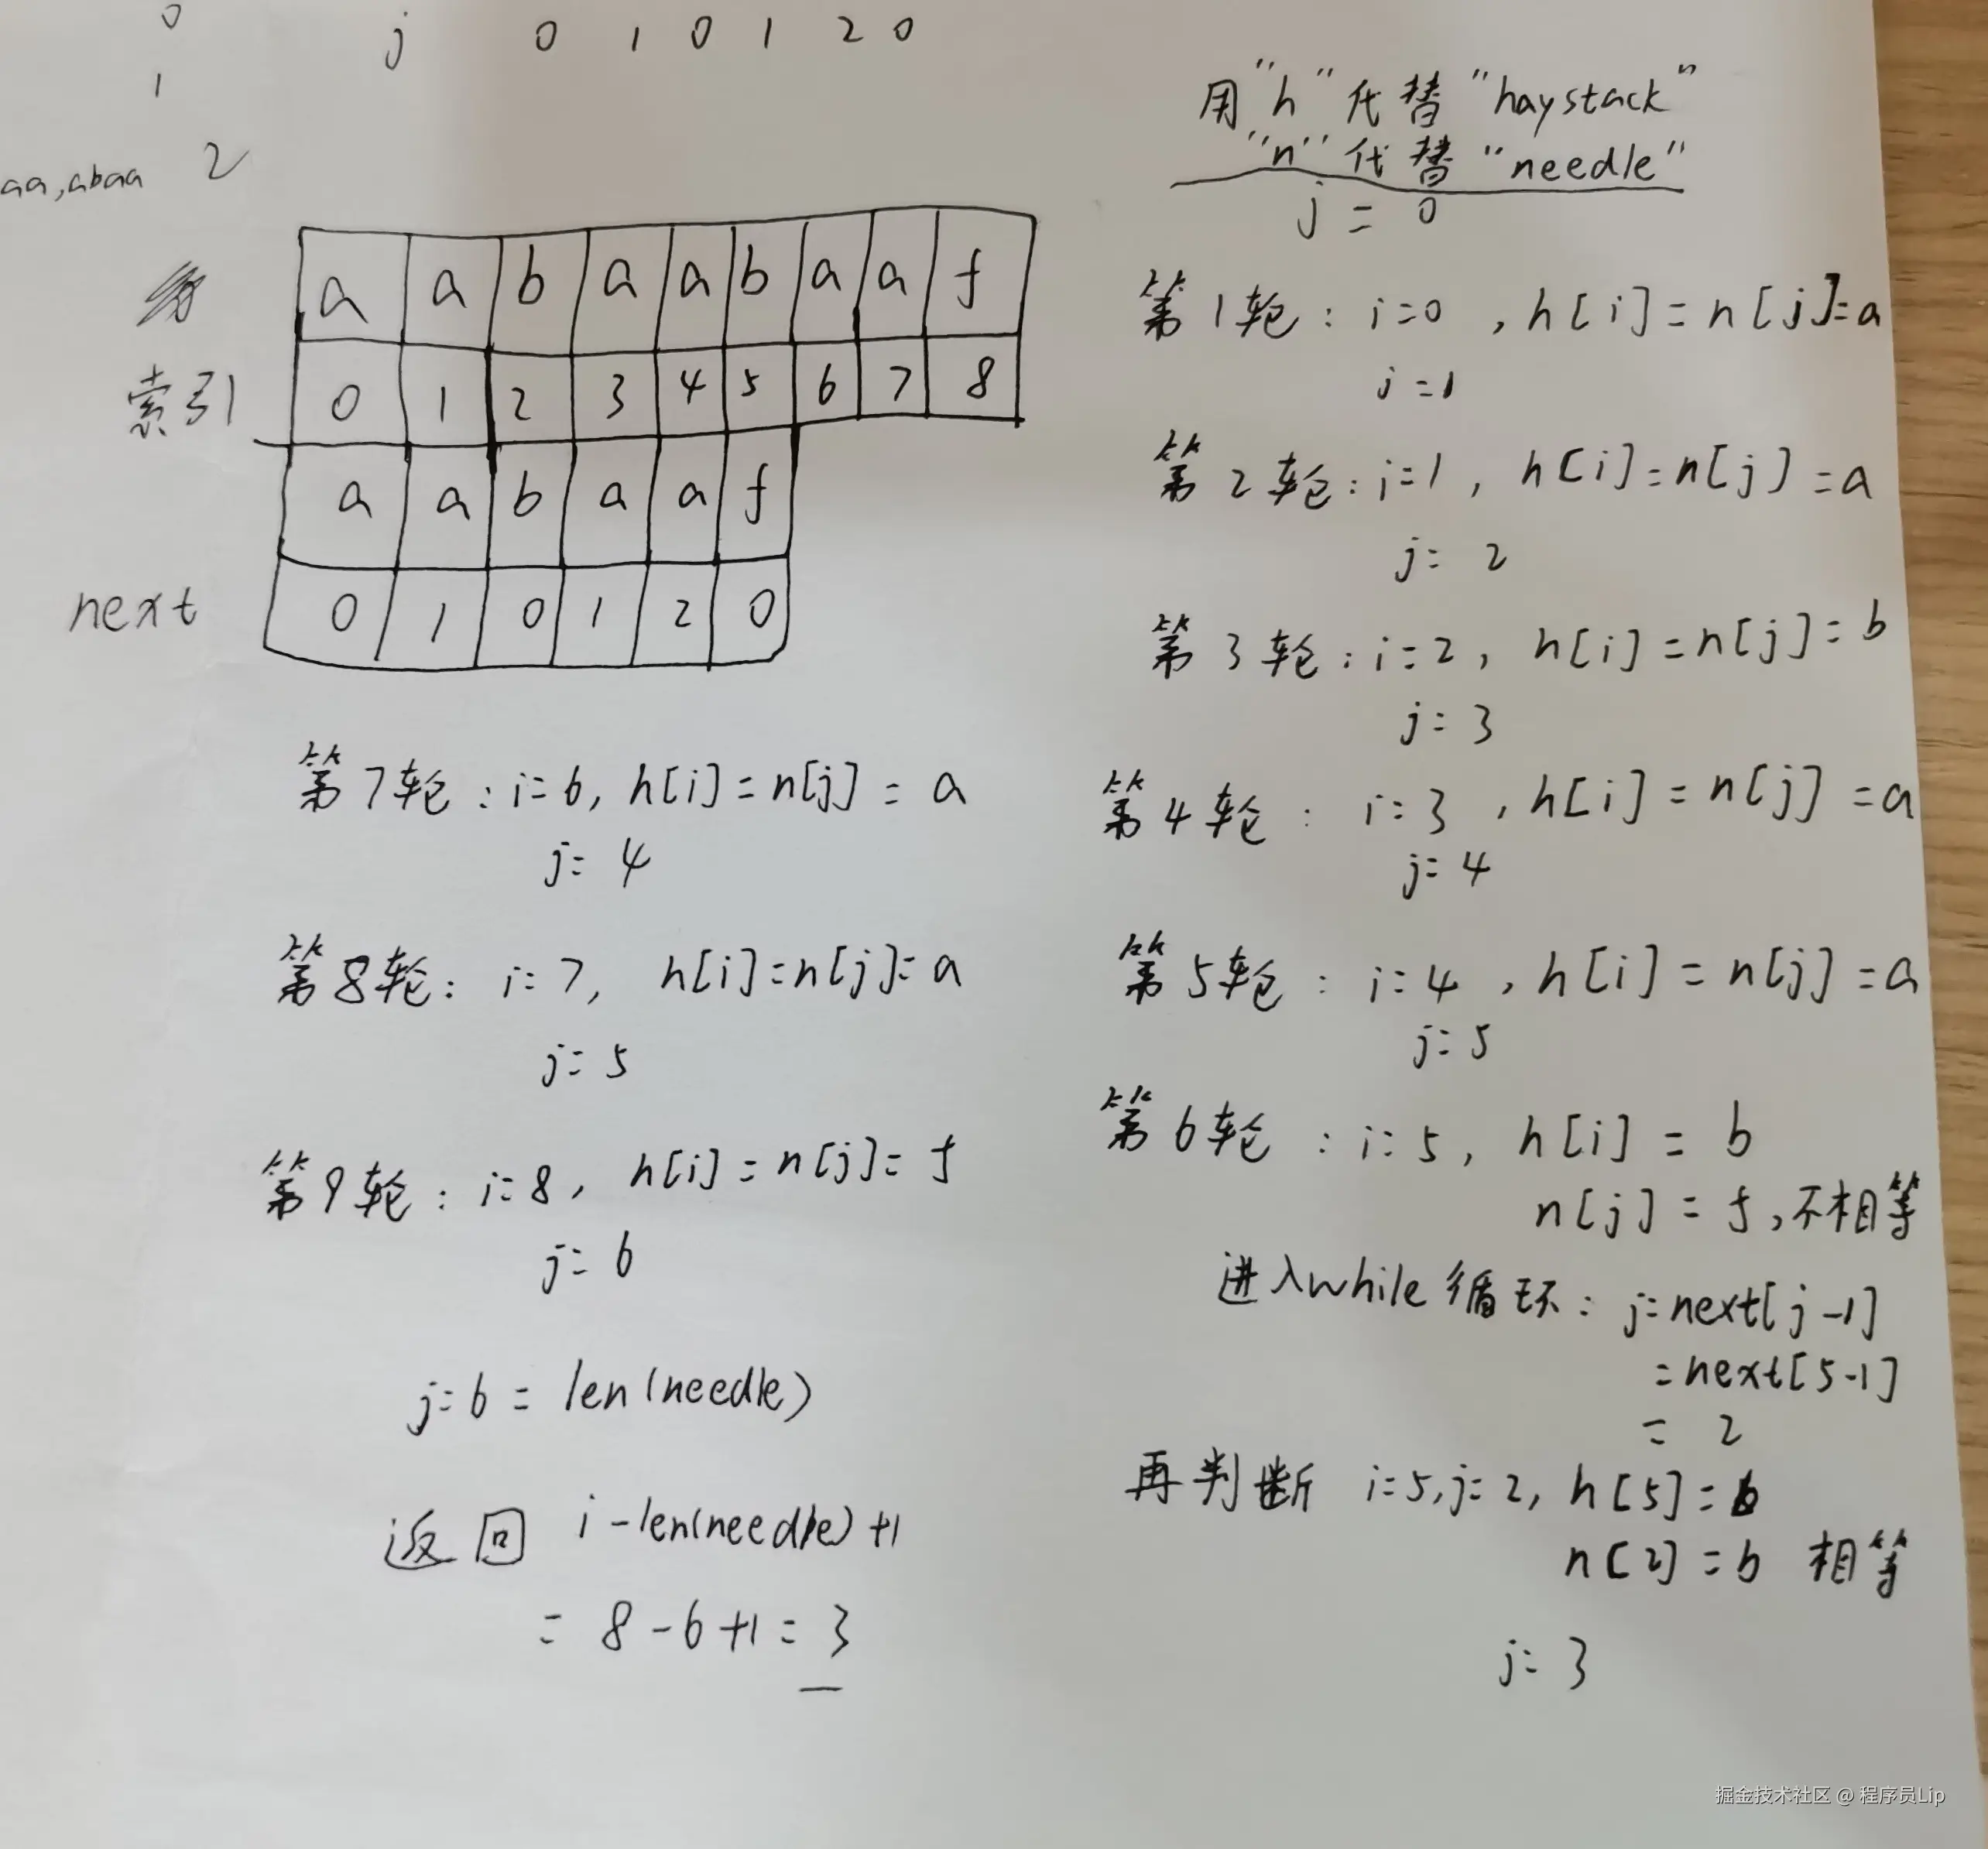 0
j 0 1 0 1 2 0
1
aa,abaa 2
a a b a a b a a f
索引 0 1 2 3 4 5 6 7 8
a a b a a f
next 0 1 0 1 2 0
用"h"代替"haystack"
"n"代替"needle"
j = 0
第1轮：i=0，h[i]=n[j]=a
j=1
第2轮：i=1，h[i]=n[j]=a
j=2
第3轮：i=2，h[i]=n[j]=b
j=3
第4轮：i=3，h[i]=n[j]=a
j=4
第5轮：i=4，h[i]=n[j]=a
j=5
第6轮：i=5，h[i]=b
n[j]=f，不相等
进入while循环：j=next[j-1]
=next[5-1]
=2
再判断 i=5,j=2，h[5]=b
n[2]=b 相等
j=3
第7轮：i=6，h[i]=n[j]=a
j=4
第8轮：i=7，h[i]=n[j]=a
j=5
第9轮：i=8，h[i]=n[j]=f
j=6
j=6=len(needle)
返回 i-len(needle)+1
=8-6+1=3
掘金技术社区 @ 程序员Lip